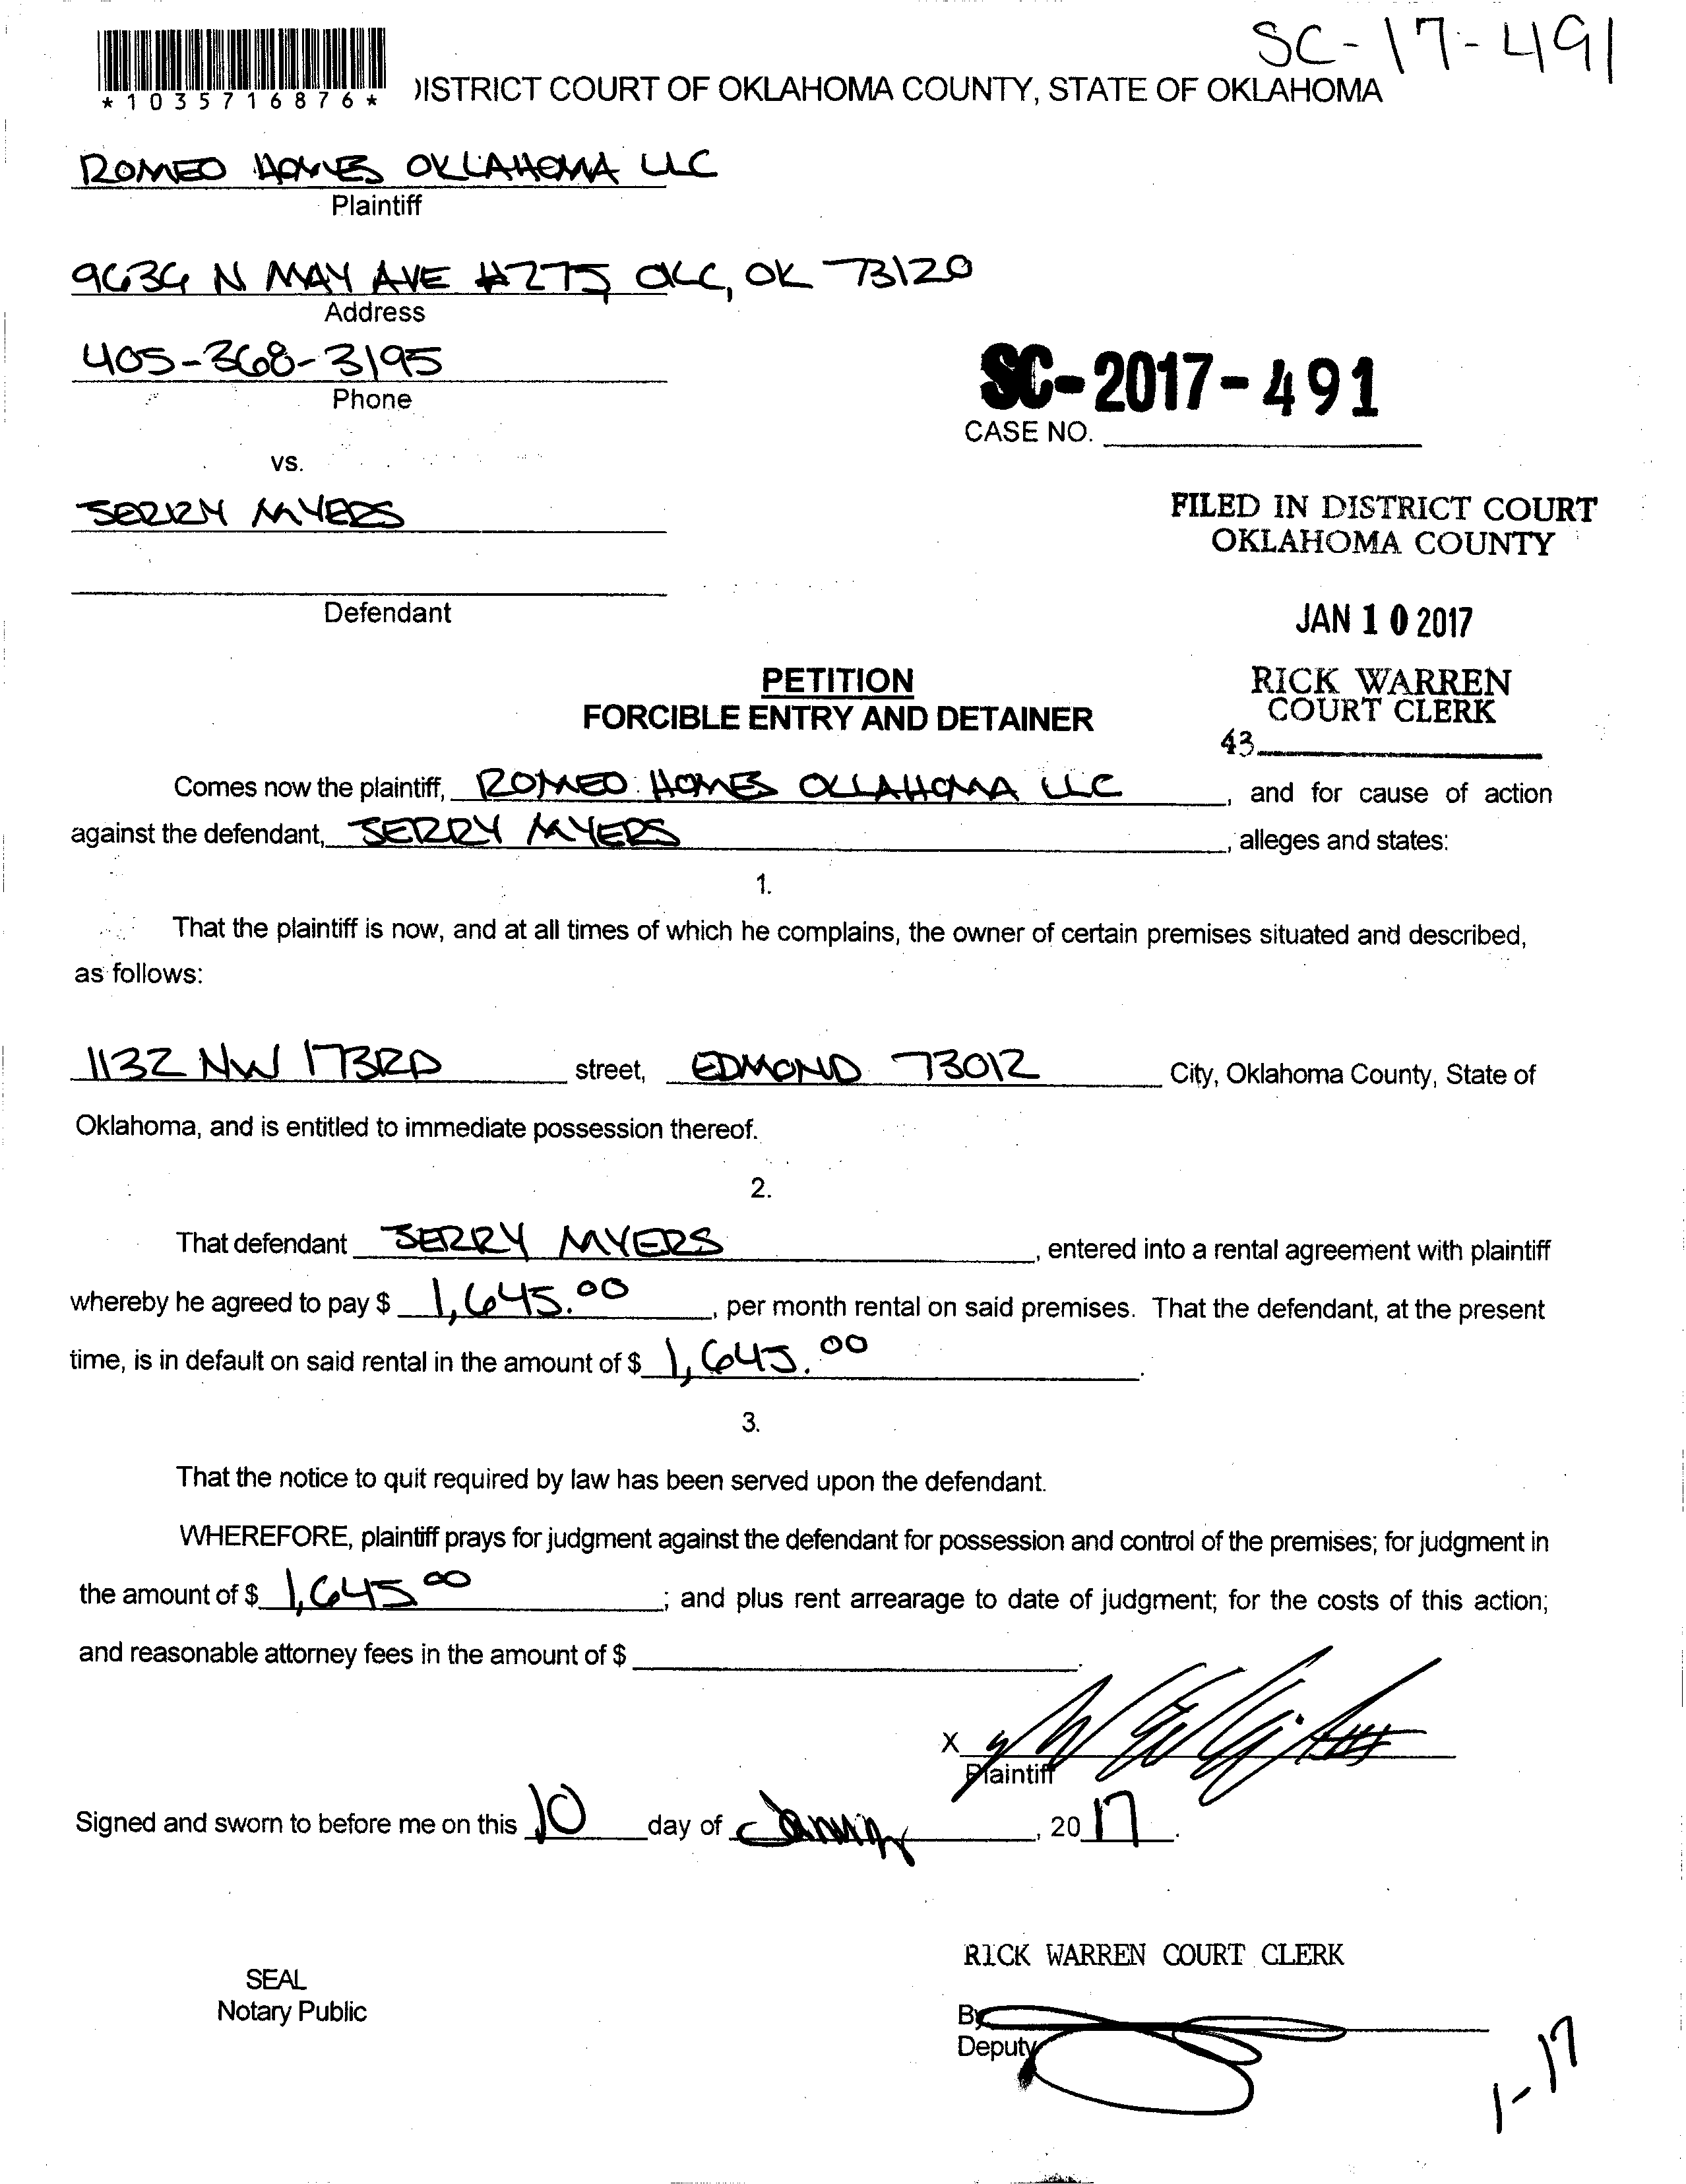 SC-17-491
*1035716876*
DISTRICT COURT OF OKLAHOMA COUNTY, STATE OF OKLAHOMA
ROMEO HOMES OKLAHOMA LLC
Plaintiff
9636 N MAY AVE #275 OKC, OK 73120
Address
405-368-3195
Phone
SC-2017-491
CASE NO.
vs.
JERRY MYERS
FILED IN DISTRICT COURT
OKLAHOMA COUNTY
Defendant
JAN 10 2017
PETITION
FORCIBLE ENTRY AND DETAINER
RICK WARREN
COURT CLERK
43
Comes now the plaintiff, ROMEO HOMES OKLAHOMA LLC, and for cause of action
against the defendant, JERRY MYERS, alleges and states:
1.
That the plaintiff is now, and at all times of which he complains, the owner of certain premises situated and described,
as follows:
1132 NW 173RD street, EDMOND 73012 City, Oklahoma County, State of
Oklahoma, and is entitled to immediate possession thereof.
2.
That defendant JERRY MYERS, entered into a rental agreement with plaintiff
whereby he agreed to pay $ 1,645.00, per month rental on said premises. That the defendant, at the present
time, is in default on said rental in the amount of $ 1,645.00.
3.
That the notice to quit required by law has been served upon the defendant.
WHEREFORE, plaintiff prays for judgment against the defendant for possession and control of the premises; for judgment in
the amount of $ 1,645 00; and plus rent arrearage to date of judgment; for the costs of this action;
and reasonable attorney fees in the amount of $
X
Plaintiff
Signed and sworn to before me on this 10 day of January, 2017.
RICK WARREN COURT CLERK
SEAL
Notary Public
By
Deputy
1-17